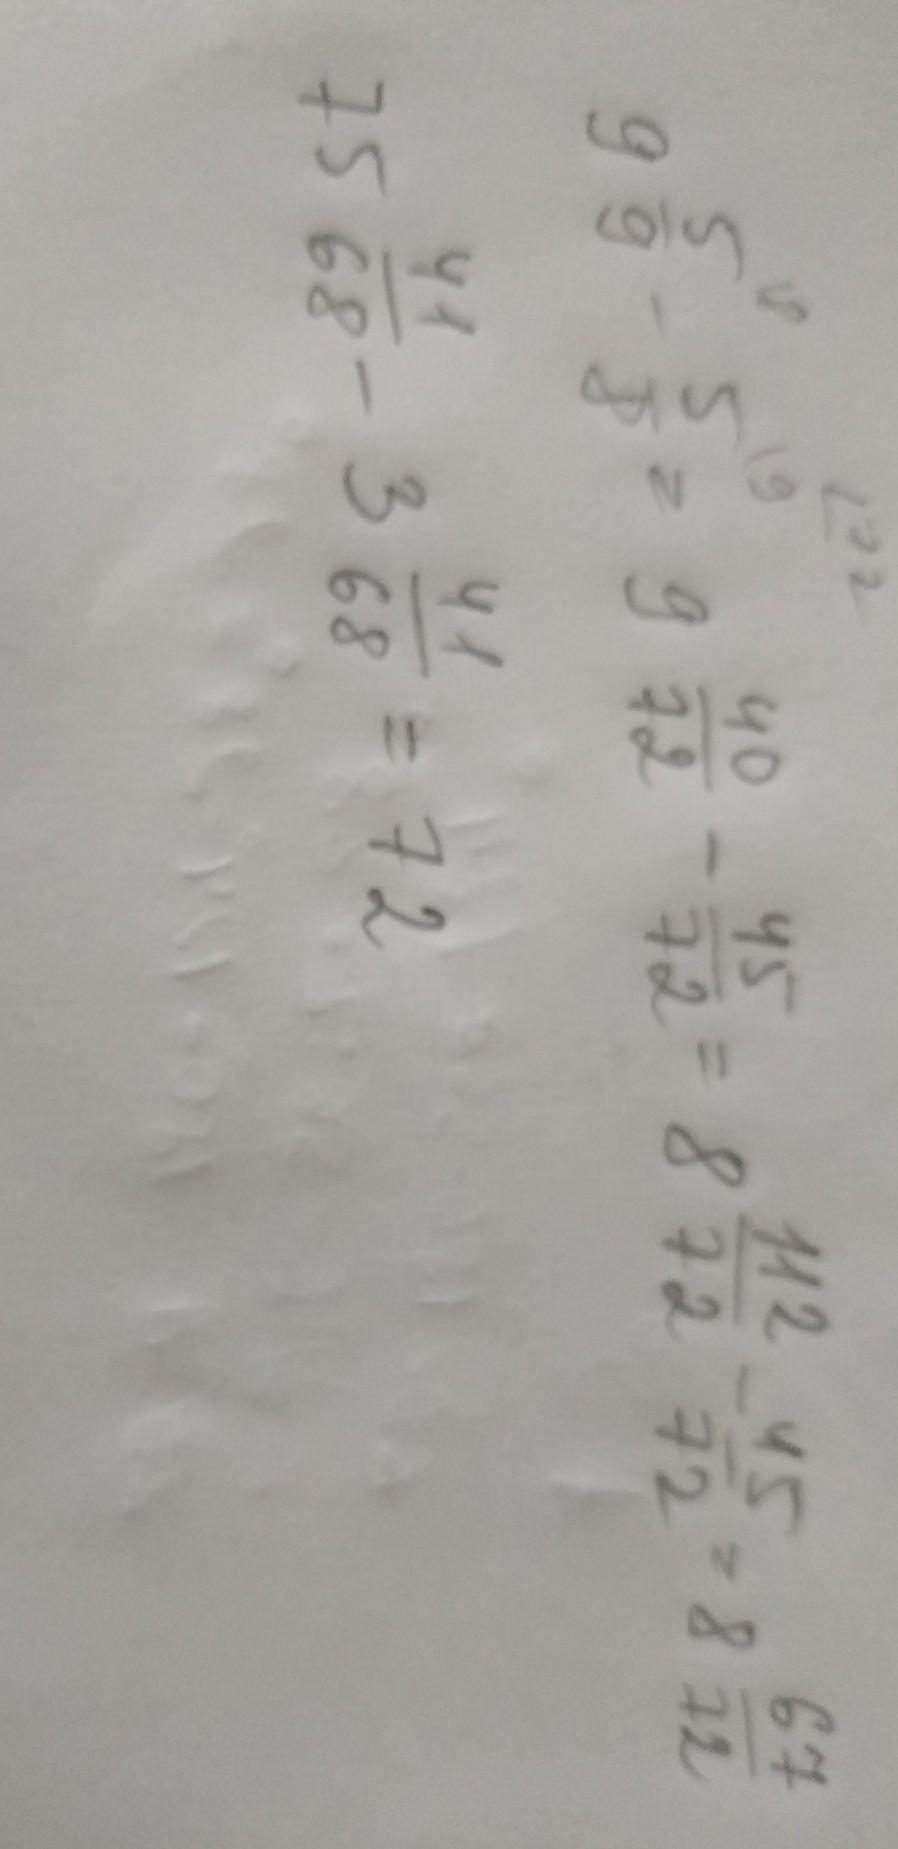 L72
9 5/9 \8 - 5/8 \9 = 9 40/72 - 45/72 = 8 112/72 - 45/72 = 8 67/72
75 41/68 - 3 41/68 = 72